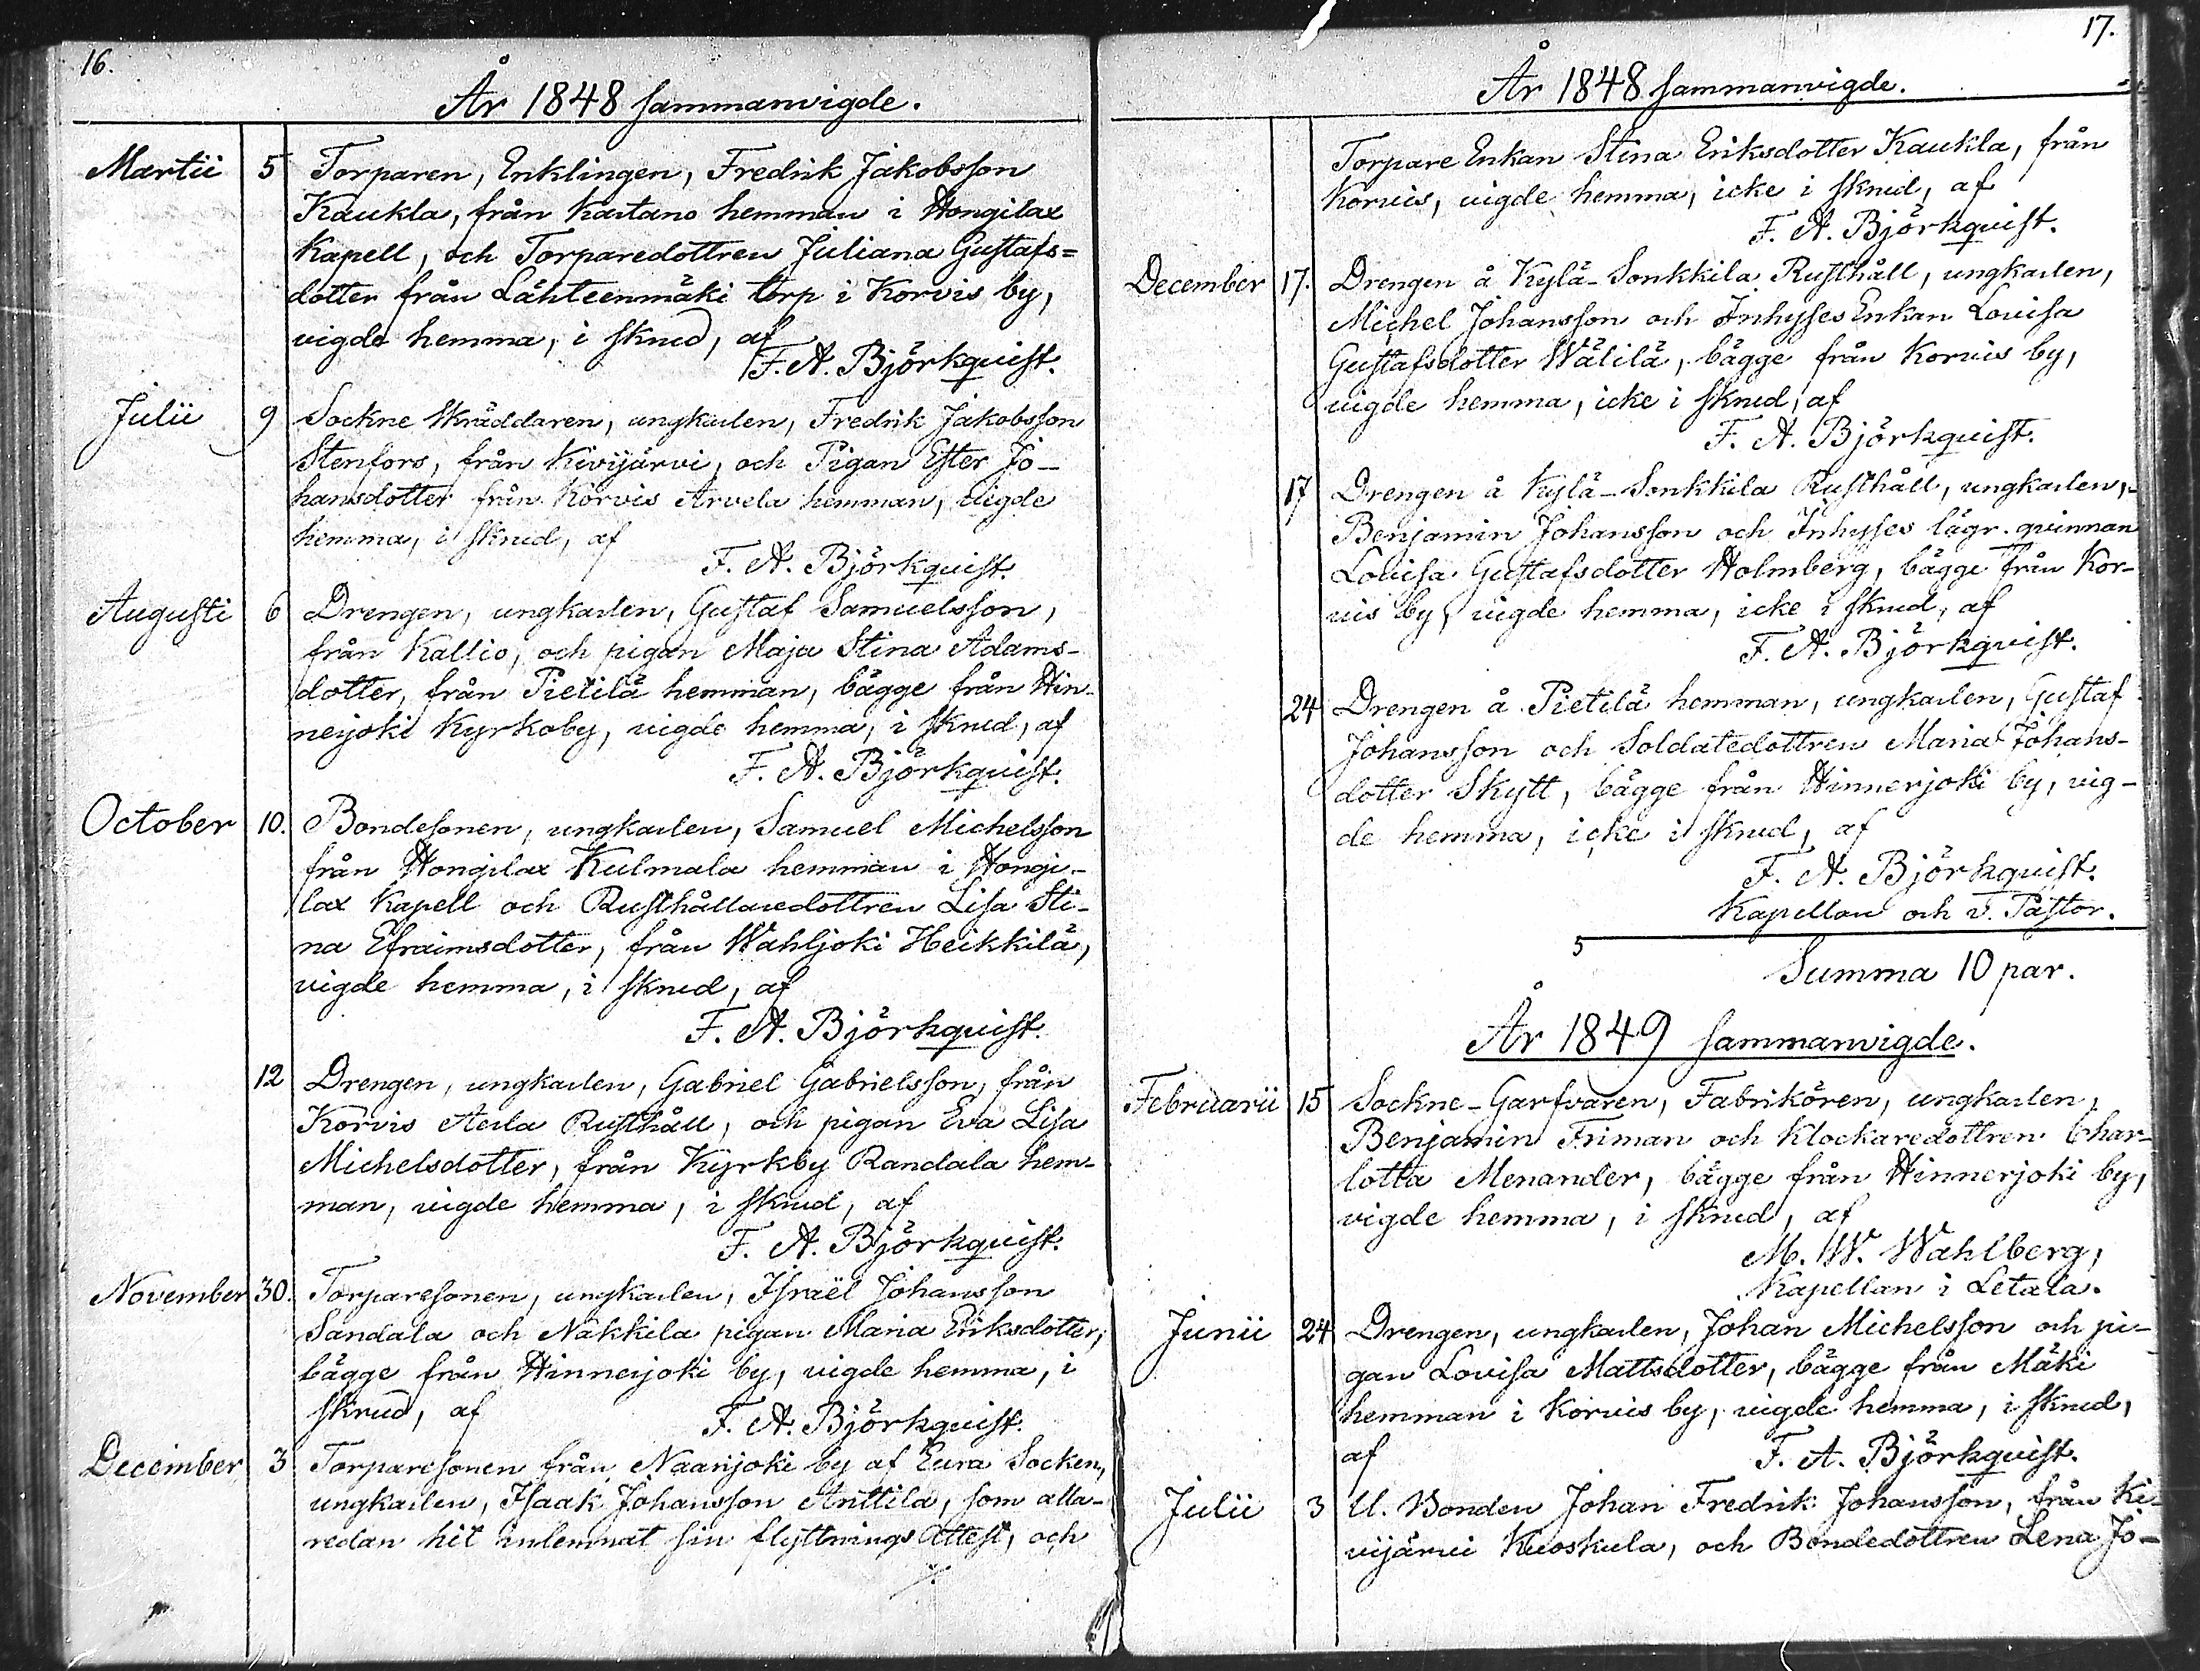 16.
År 1848 sammanvigde.
Martii 5 Torparen, Enklingen, Fredrik Jakobsson
Kaukla, från Kartano hemman i Hongilax
Kapell, och Torparedottren Juliana Gustafs=
dotter från Lähteenmäki torp i Korvis by,
vigde hemma, i skrud, af
F. A. Björkquist.
Julii 9 Sockne Skräddaren, ungkarlen, Fredrik Jakobsson
Stenfors, från Kivijärvi, och Pigan Ester Jo-
hansdotter från Korvis Arvela hemman, vigde
hemma, i skrud, af
F. A. Björkquist.
Augusti 6 Drengen, ungkarlen, Gustaf Samuelsson,
från Kallio, och pigan Maja Stina Adams-
dotter, från Pietilä hemman, bägge från Hin-
nerjoki Kyrkoby, vigde hemma, i skrud, af
F. A. Björkquist.
October 10. Bondesonen, ungkarlen, Samuel Michelsson
från Hongilax Kulmala hemman i Hongi-
lax Kapell och Rusthållaredottren Lisa Sti-
na Efraimsdotter, från Wahljoki Heikkilä,
vigde hemma, i skrud, af
F. A. Björkquist.
12 Drengen, ungkarlen, Gabriel Gabrielsson, från
Korvis Aerla Rusthåll, och pigan Eva Lisa
Michelsdotter, från Kyrkby Randala hem-
man, vigde hemma, i skrud, af
F. A. Björkquist.
November 30. Torparesonen, ungkarlen, Israël Johansson
Sandala och Näkkilä pigan Maria Eriksdotter,
bägge från Hinnerjoki by, vigde hemma, i
skrud, af
F. A. Björkquist.
December 3 Torparesonen från Naarijoki by af Eura Socken,
ungkarlen, Isaak Johansson Anttila, som alla-
redan hit inlemnat sin flyttnings Attest, och
17.
År 1848 sammanvigde.
Torpare Enkan Stina Eriksdotter Kaukla, från
Korvis, vigde hemma, icke i skrud, af
F. A. Björkquist.
December 17. Drengen å Kylä-Sonkkila Rusthåll, ungkarlen,
Michel Johansson och Inhyses Enkan Lovisa
Gustafsdotter Wälilä, bägge från Korvis by,
vigde hemma, icke i skrud, af
F. A. Björkquist.
17 Drengen å Kylä-Sonkkila Rusthåll, ungkarlen,
Benjamin Johansson och Inhyses lägr. qvinnan
Lovisa Gustafsdotter Holmberg, bägge från Kor-
vis by, vigde hemma, icke i skrud, af
F. A. Björkquist.
24 Drengen å Pietilä hemman, ungkarlen, Gustaf
Johansson och Soldatedottren Maria Johans-
dotter Skytt, bägge från Hinnerjoki by, vig-
de hemma, icke i skrud, af
F. A. Björkquist.
Kapellan och v. Pastor.
5
Summa 10 par.
År 1849 sammanvigde.
Februarii 15 Sockne-Garfvaren, Fabrikören, ungkarlen,
Benjamin Friman och Klockaredottren Char-
lotta Menander, bägge från Hinnerjoki by,
vigde hemma, i skrud, af
M. W. Wahlberg,
Kapellan i Letala.
Junii 24 Drengen, ungkarlen, Johan Michelsson och pi-
gan Lovisa Mattsdotter, bägge från Mäki
hemman i Korvis by, vigde hemma, i skrud,
af
F. A. Björkquist.
Julii 3 U. Bonden Johan Fredrik Johansson, från Ki-
vijärvi Kuoskula, och Bondedottren Lena Jo-